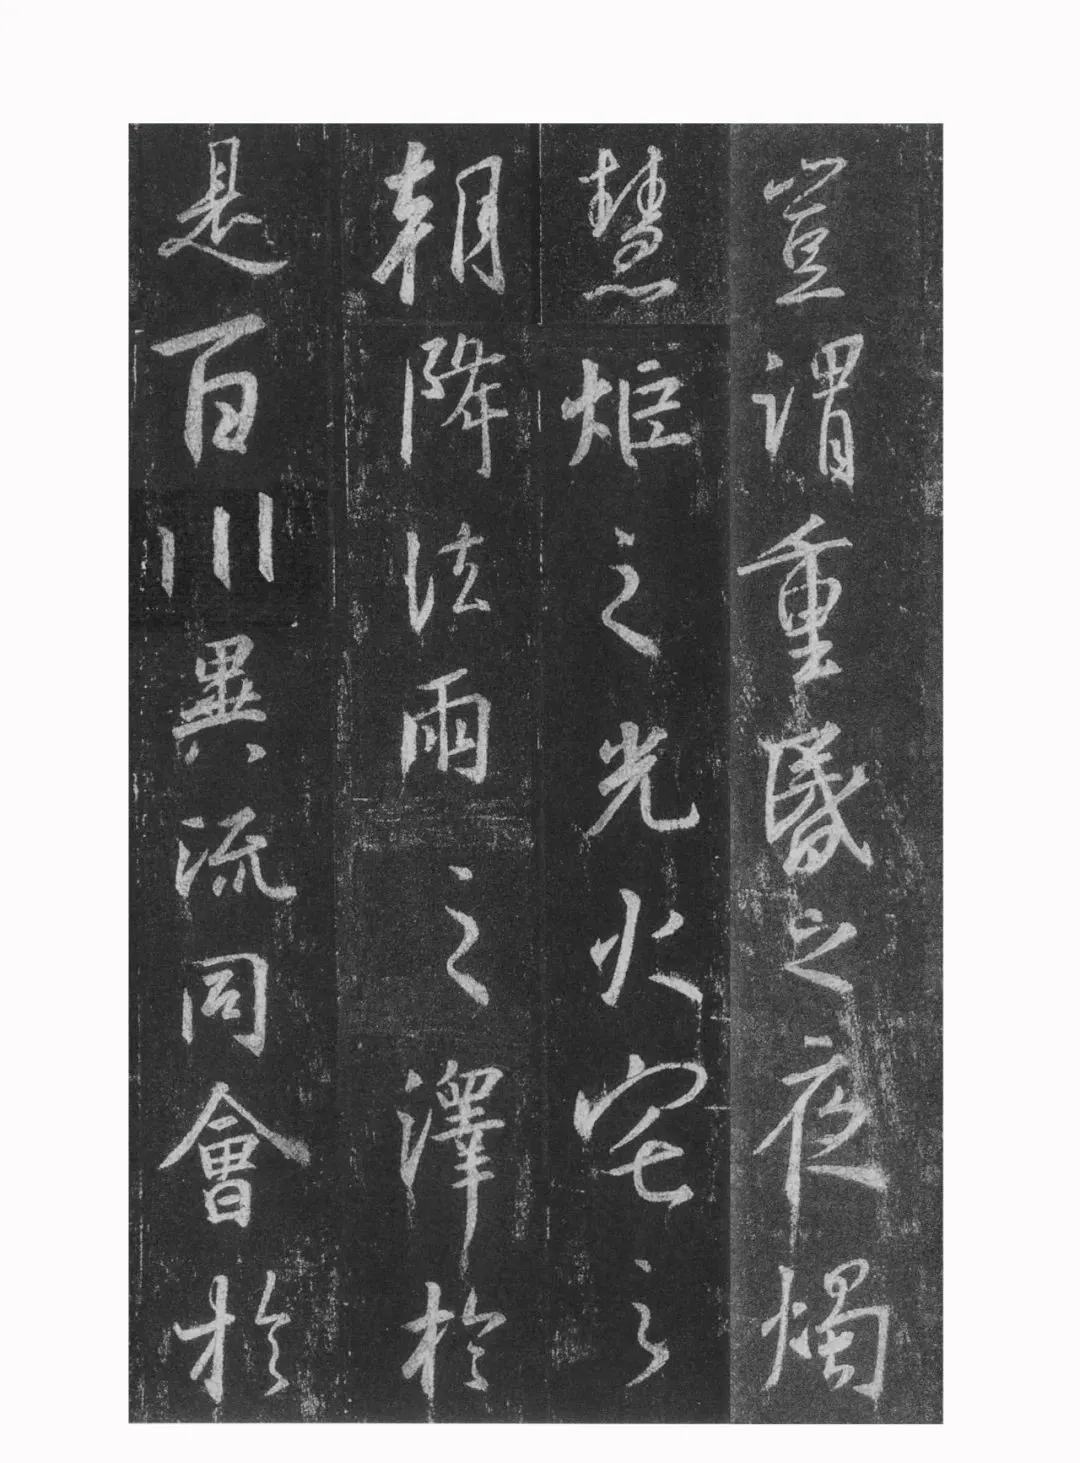 豈謂重昏之夜燭
慧炬之光火宅之
朝降法雨之澤於
是百川異流同會於